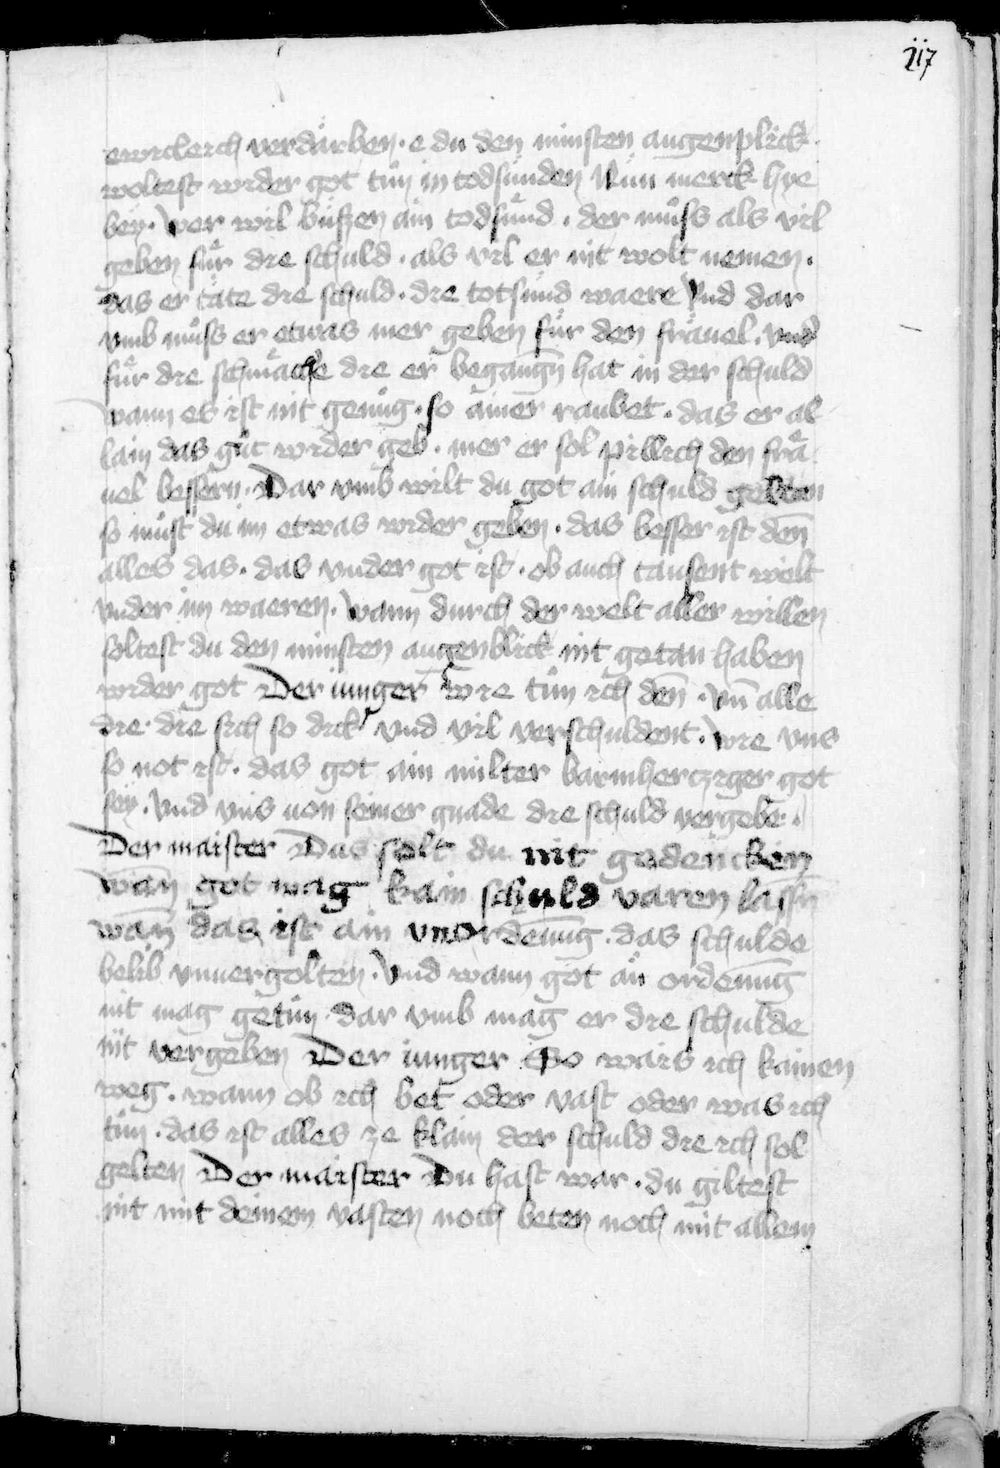 217
ewiclich verdärben · e du den minsten augenplick
woltest wider got tůn in todsünden Nun merck hye
bey · wer wil bůssen ain todsünd · der můss als vil
geben für die schuld · als vil er nit wolt nemen ·
das er täte die schuld · die totsünd waere Vnd dar
vmb můss er etwas mer geben für den fräuel · vnd
für die schmäche die er begangn̄ hat in der schuld
wann es ist nit genůg · so ainer raubet · das er al
lain das gůt wider geb · mer er sol pillich den frä
uel bessern · Dar vmb wilt du got ain schuld gelten
so můst du im etwas wider geben · das besser ist den̄
alles das · das vnder got ist · ob auch tausent welt
vnder im waeren · wann durch der welt aller willen
soltest du den minsten augenblick nit getan haben
wider got Der iunger Wie tůn ich den̄ · vn̄ alle
die · die sich so dick vnd vil verschuldent · wie vns
so not ist · das got ain milter barmhercziger got
sey · vnd vns von seiner gnade die schuld vergebe ·
Der maister Das solt du nit gedencken
wan̄ got mag kain schuld varen lassn̄
wan̄ das ist ain vnordenu̅g · das schulde
belib vnuergolten · Vnd wann got an̄ ordenu̅g
nit mag getůn · dar vmb mag er die schulde
nit vergeben Der iunger So wais ich kainen
weg · wann ob ich bet oder vast oder was ich
tůn · das ist alles ze klain der schuld die ich sol
gelten Der maister Du hast war · du giltest
nit mit deinem vasten noch beten noch mit allem